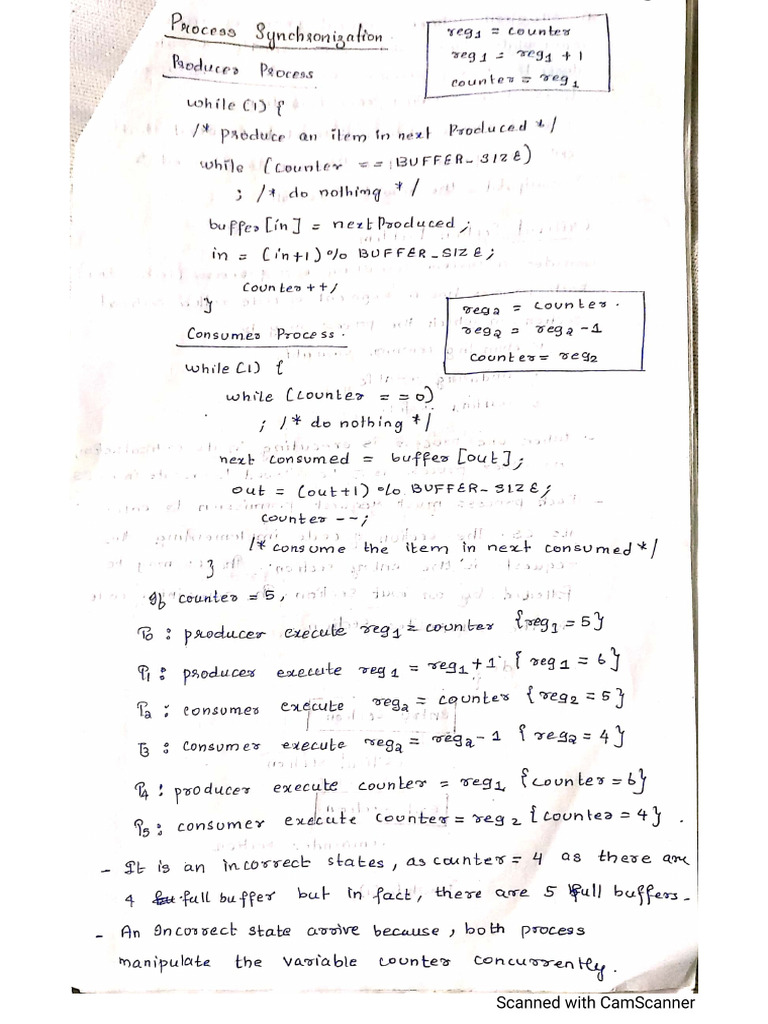 Process Synchronization.
reg1 = counter
reg1 = reg1 + 1
counter = reg1
Producer Process
while (1) {
/* produce an item in next Produced */
while (counter == BUFFER_SIZE)
; /* do nothing */
buffer[in] = nextProduced;
in = (in+1) % BUFFER_SIZE;
counter++;
}
reg2 = counter.
reg2 = reg2 -1
counter = reg2
Consumer Process.
while (1) {
while (counter == 0)
; /* do nothing */
next consumed = buffer [out];
out = (out+1) % BUFFER_SIZE;
counter --;
/* consume the item in next consumed */
}
If counter = 5,
T0 : producer execute reg1 = counter {reg1 = 5}
T1 : producer execute reg1 = reg1+1 { reg1 = 6}
T2 : consumer execute reg2 = counter { reg2 = 5}
T3 : consumer execute reg2 = reg2 - 1 { reg2 = 4}
T4 : producer execute counter = reg1 {counter = 6}
T5 : consumer execute counter = reg2 {counter = 4}.
- It is an incorrect states, as counter = 4 as there are
4 full buffer but in fact, there are 5 full buffers.
- An Incorrect state arrive because, both process
manipulate the variable counter concurrently.
Scanned with CamScanner